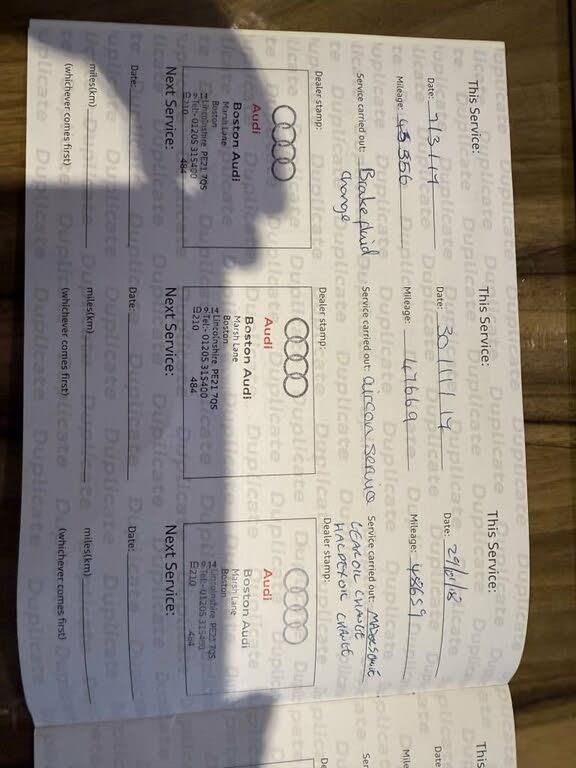 This Service:
Date: 7/3/17
Mileage: 45356
Service carried out: Brake fluid
change
Dealer stamp:
Audi
Boston Audi
Marsh Lane
Boston
Lincolnshire PE21 7QS
Tel:- 01205 315400
210 484
Next Service:
Date:
miles(km)
(whichever comes first)
This Service:
Date: 30/11/17
Mileage: 47669
Service carried out: aircon service
Dealer stamp:
Audi
Boston Audi
Marsh Lane
Boston
Lincolnshire PE21 7QS
Tel:- 01205 315400
210 484
Next Service:
Date:
miles(km)
(whichever comes first)
This Service:
Date:
Mileage: 48659
Service carried out:
GEAR OIL CHANGE
HALDEX OIL CHANGE
Dealer stamp:
Audi
Boston Audi
Marsh Lane
Boston
Lincolnshire PE21 7QS
Tel:- 01205 315400
210 484
Next Service:
Date:
miles(km)
(whichever comes first)
This
Date
Mile
Ser
De
Duplicate